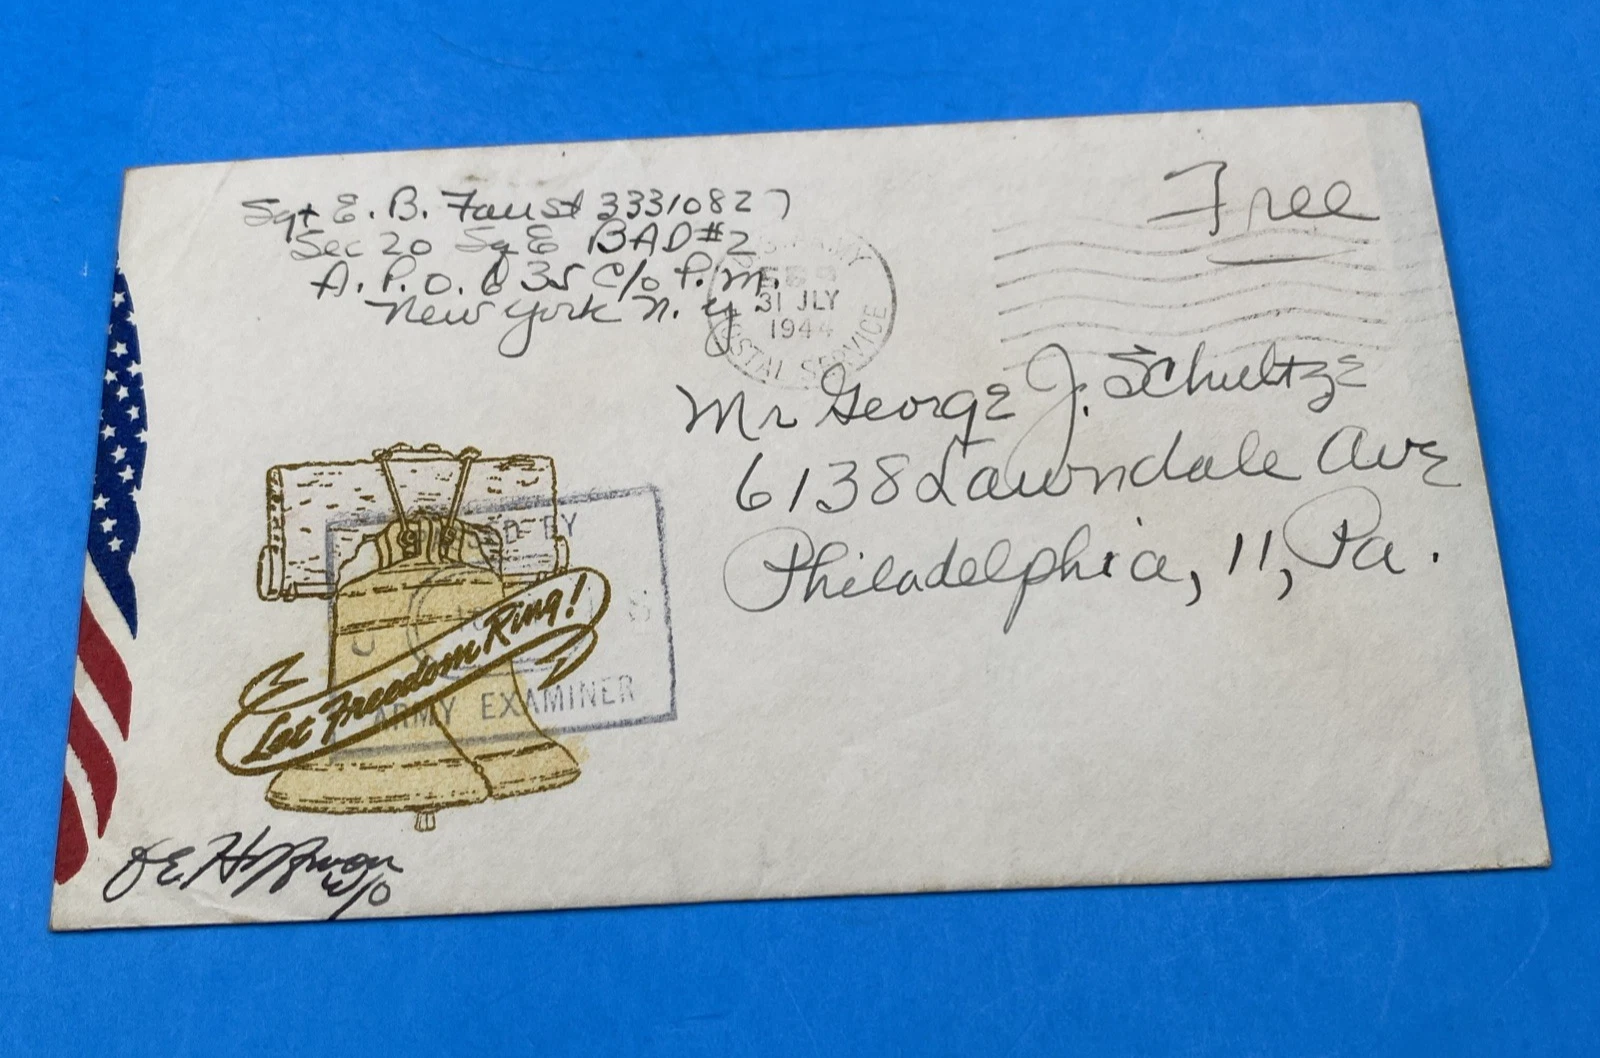 Sgt E. B. Faust 33310827
Sec 20 Sq E BAD#2
A. P. O. 635 c/o P. M.
New York N. Y.
Free
U.S. ARMY
31 JLY
1944
POSTAL SERVICE
Mr George J. Schultze
6138 Lawndale Ave
Philadelphia, 11, Pa.
BY
Let Freedom Ring!
ARMY EXAMINER
W/O